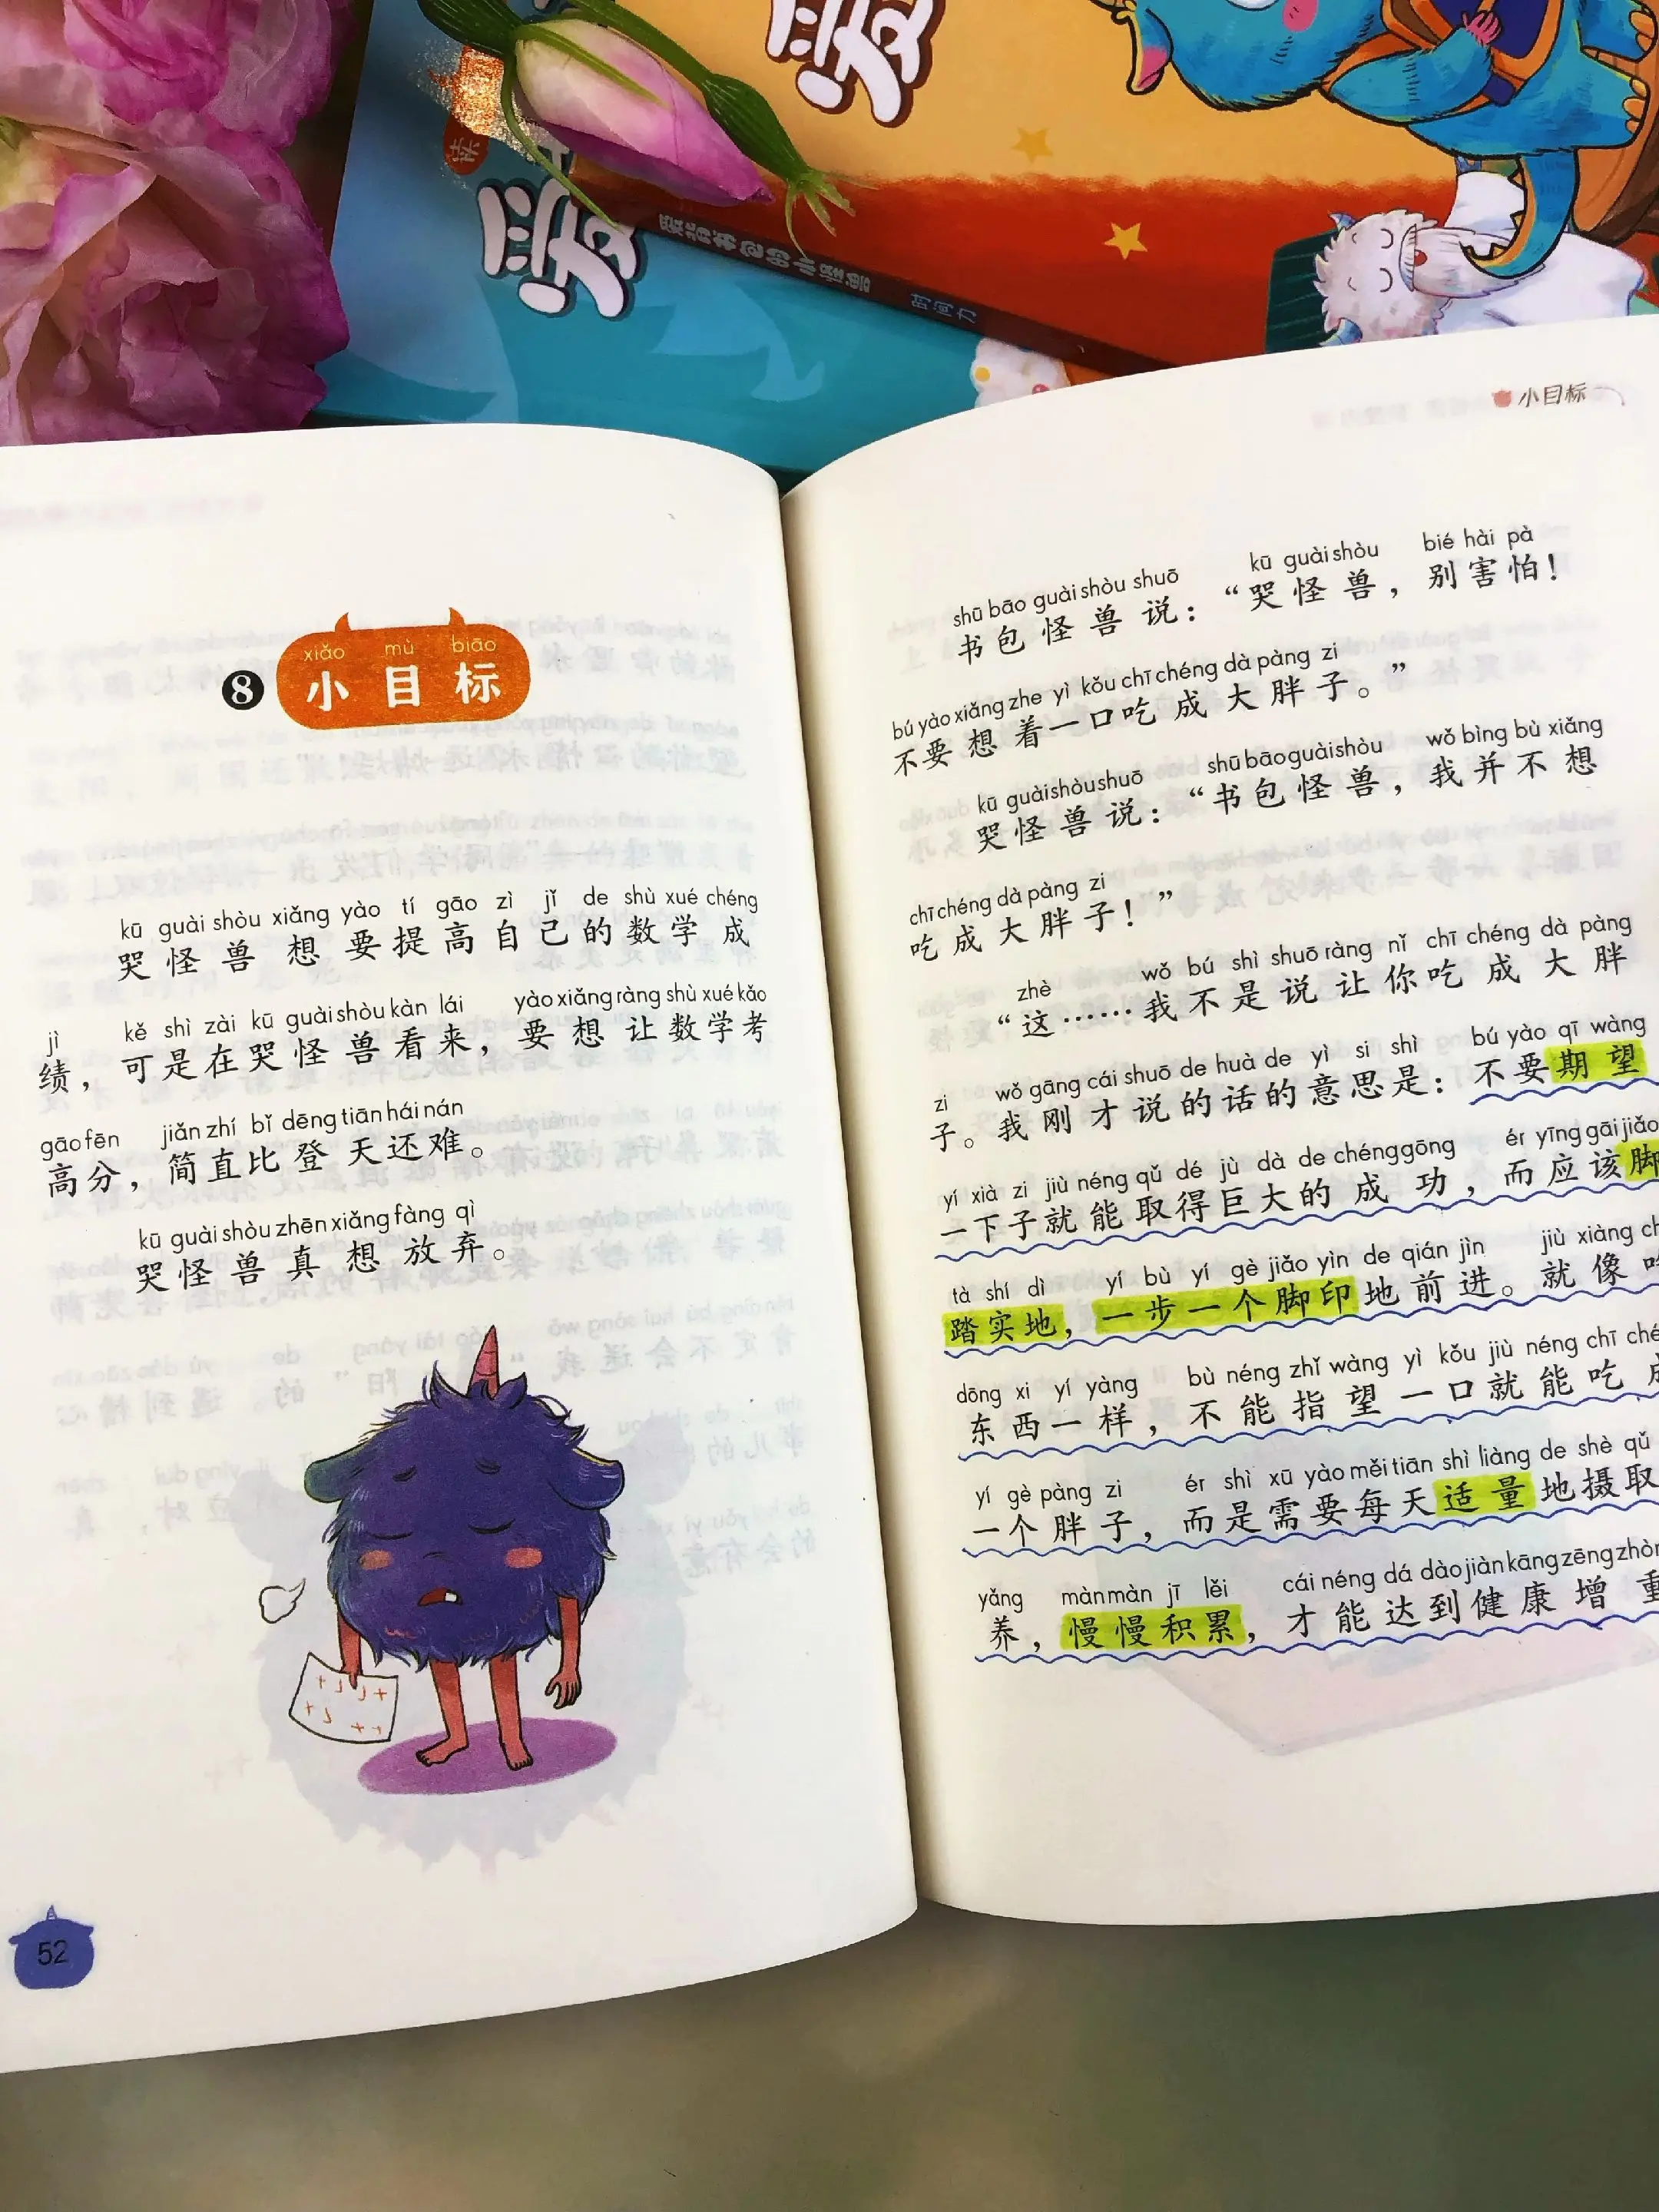 爱
读
爱
爱背书包的小怪兽 时间力
小目标
xiǎo mù biāo
8 小目标
kū guài shòu xiǎng yào tí gāo zì jǐ de shù xué chéng
哭怪兽想要提高自己的数学成
jì kě shì zài kū guài shòu kàn lái yào xiǎng ràng shù xué kǎo
绩，可是在哭怪兽看来，要想让数学考
gāo fēn jiǎn zhí bǐ dēng tiān hái nán
高分，简直比登天还难。
kū guài shòu zhēn xiǎng fàng qì
哭怪兽真想放弃。
52
shū bāo guài shòu shuō kū guài shòu bié hài pà
书包怪兽说：“哭怪兽，别害怕！
bú yào xiǎng zhe yì kǒu chī chéng dà pàng zi
不要想着一口吃成大胖子。”
kū guài shòu shuō shū bāo guài shòu wǒ bìng bù xiǎng
哭怪兽说：“书包怪兽，我并不想
chī chéng dà pàng zi
吃成大胖子！”
zhè wǒ bú shì shuō ràng nǐ chī chéng dà pàng
“这……我不是说让你吃成大胖
zi wǒ gāng cái shuō de huà de yì si shì bú yào qī wàng
子。我刚才说的话的意思是：不要期望
yí xià zi jiù néng qǔ dé jù dà de chéng gōng ér yīng gāi jiǎo
一下子就能取得巨大的成功，而应该脚
tà shí dì yí bù yí gè jiǎo yìn de qián jìn jiù xiàng
踏实地，一步一个脚印地前进。就像
dōng xi yí yàng bù néng zhǐ wàng yì kǒu jiù néng chī
东西一样，不能指望一口就能吃
yí gè pàng zi ér shì xū yào měi tiān shì liàng de shè qǔ
一个胖子，而是需要每天适量地摄取
yǎng màn màn jī lěi cái néng dá dào jiàn kāng zēng
养，慢慢积累，才能达到健康增重